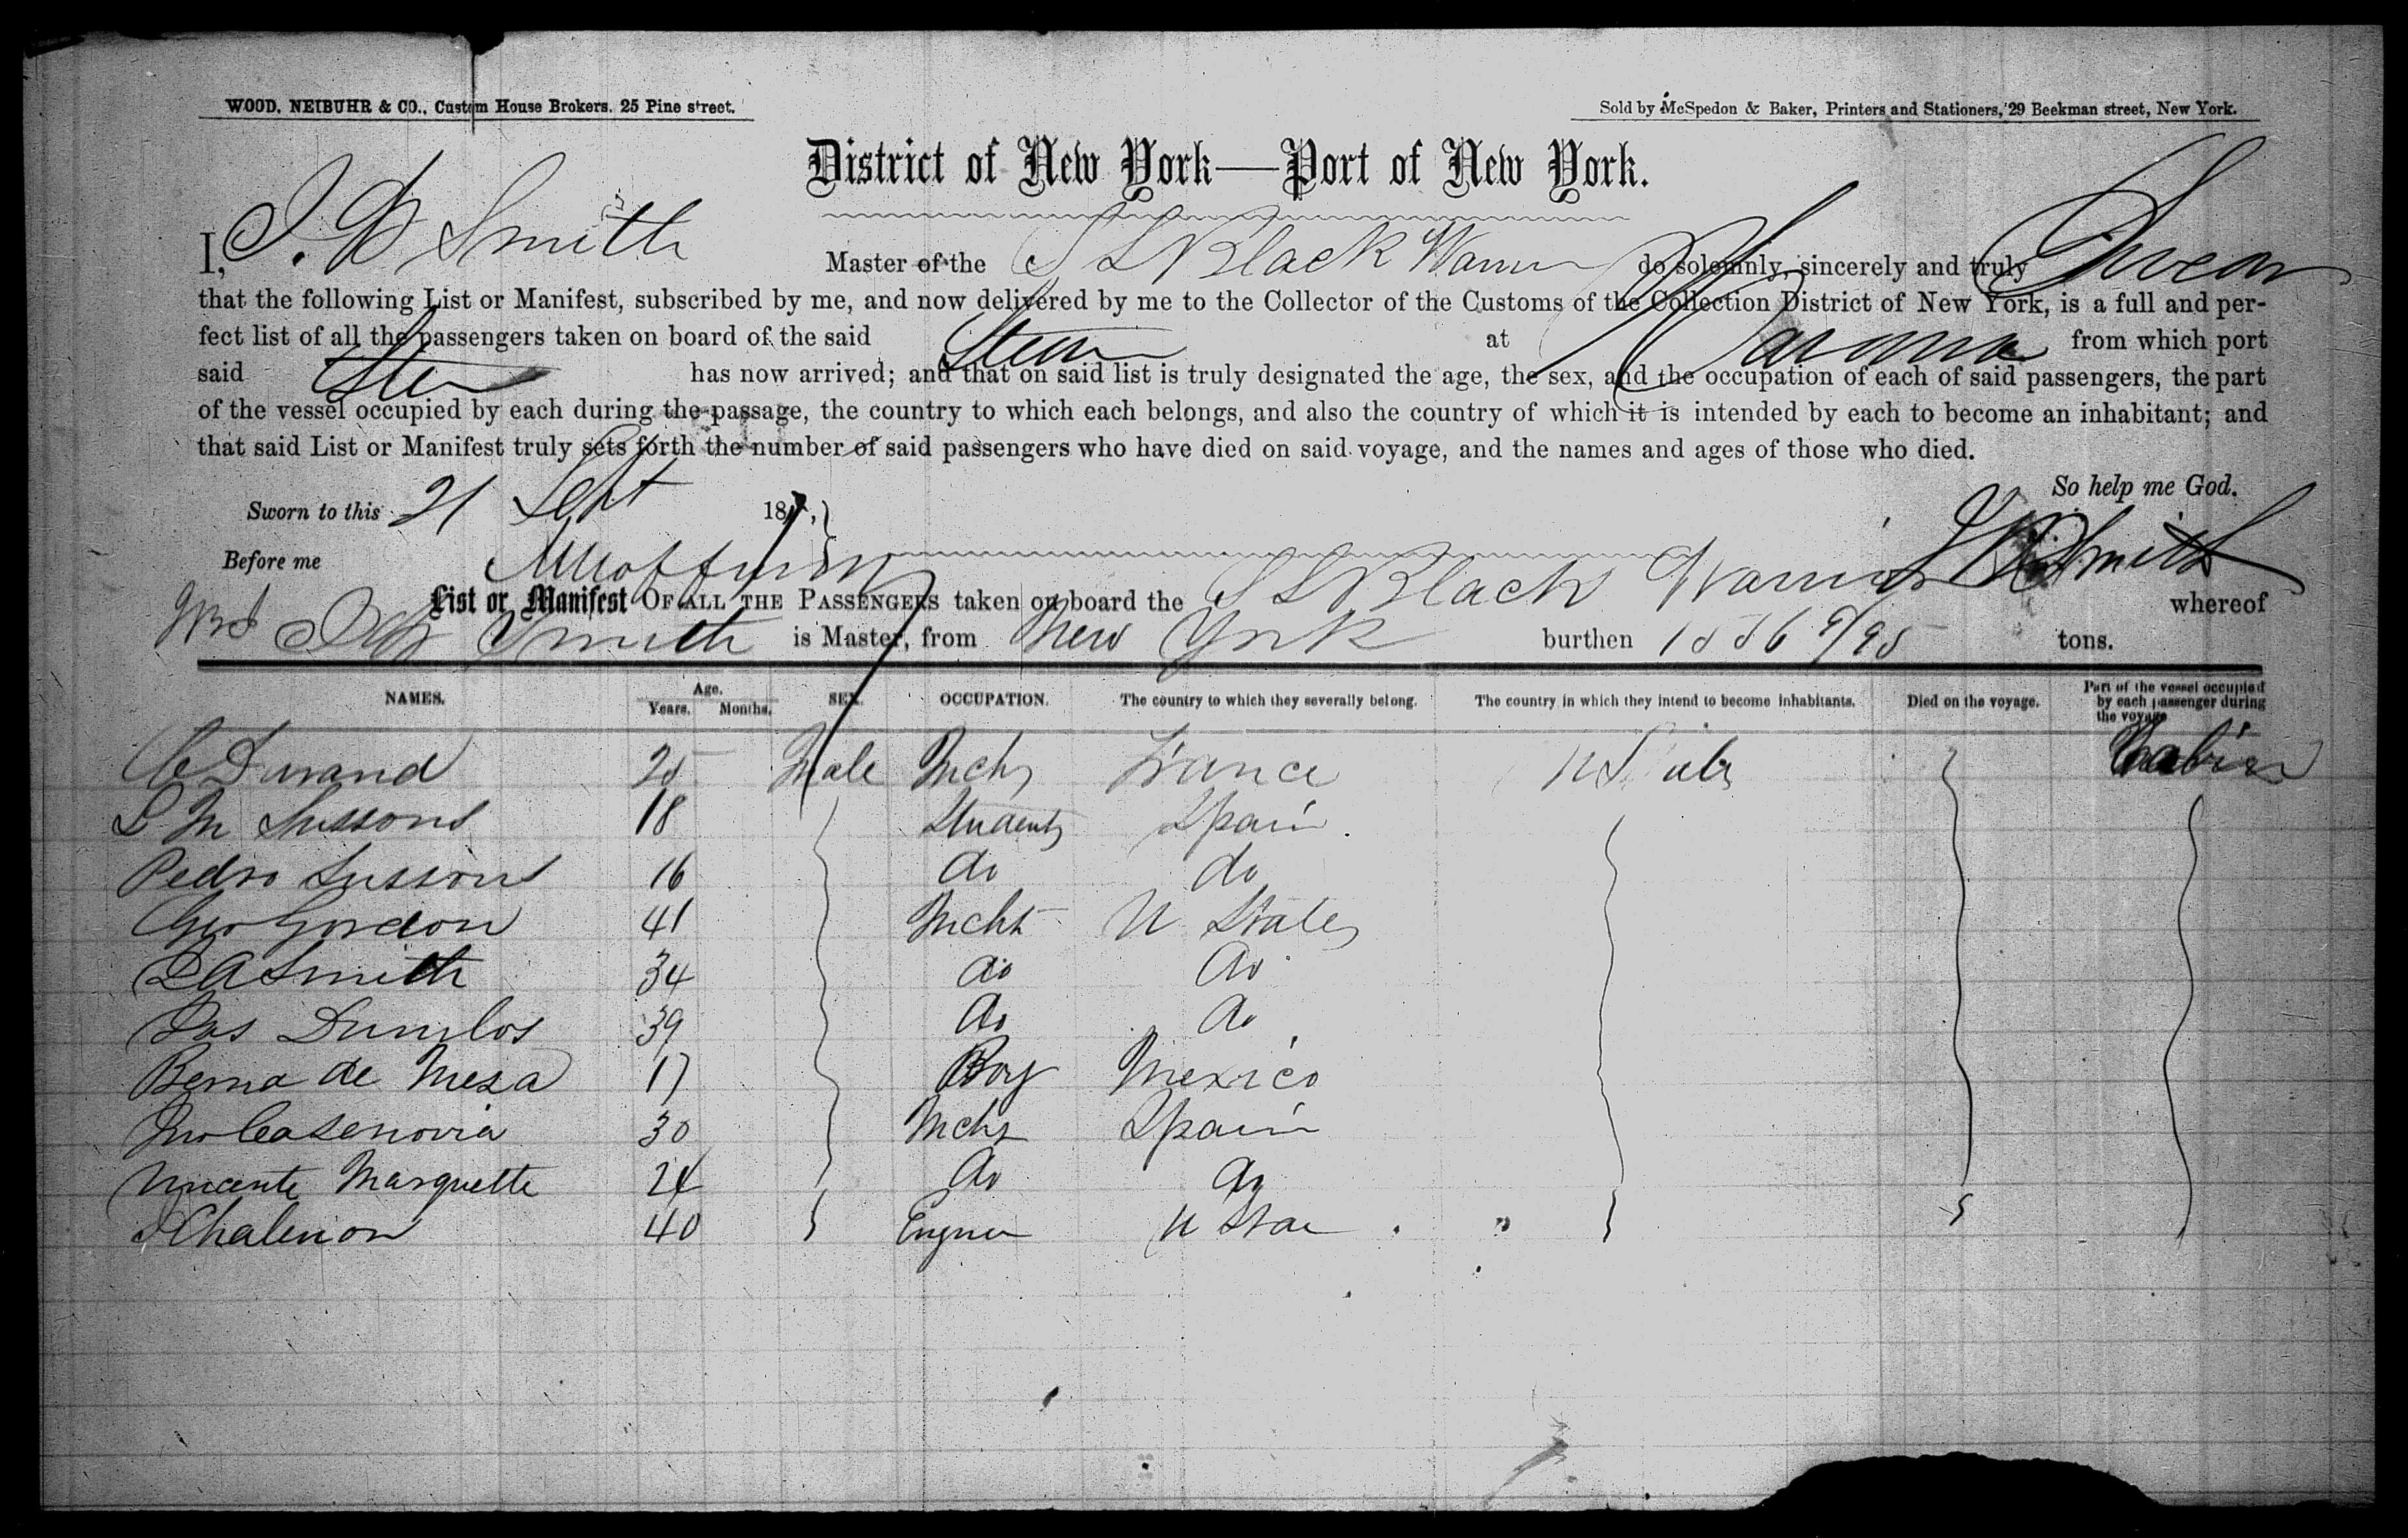 WOOD, NEIBUHR & CO., Custom House Brokers. 25 Pine street.
Sold by McSpedon & Baker, Printers and Stationers, 29 Beekman street, New York.
District of New York—Port of New York.
I, J. D Smith Master of the S S Black Warrior do solemnly, sincerely and truly Swear
that the following List or Manifest, subscribed by me, and now delivered by me to the Collector of the Customs of the Collection District of New York, is a full and per-
fect list of all the passengers taken on board of the said Steam at Havana from which port
said Ste has now arrived; and that on said list is truly designated the age, the sex, and the occupation of each of said passengers, the part
of the vessel occupied by each during the passage, the country to which each belongs, and also the country of which it is intended by each to become an inhabitant; and
that said List or Manifest truly sets forth the number of said passengers who have died on said voyage, and the names and ages of those who died.
So help me God.
Sworn to this 21 Sept 18 ,
Before me Smith
List or Manifest OF ALL THE PASSENGERS taken on board the S S Black Warrior whereof
Smith is Master, from New York burthen 1556 9/95 tons.
NAMES. Age. Years. Months. SEX. OCCUPATION. The country to which they severally belong. The country in which they intend to become inhabitants. Died on the voyage. Part of the vessel occupied by each passenger during the voyage
C Durand 25 Male Mcht France U States Cabin
S M Sussons 18 Students Spain
Pedro Sussons 16 do do
Geo Gordon 41 Mcht U States
Smith 34 do do
Jas 39 do do
Berna de Mesa 17 Boy Mexico
Jno Casenovia 30 Mcht Spain
Vincente Marquette 24 do do
Chalenon 40 Engner U Sta "